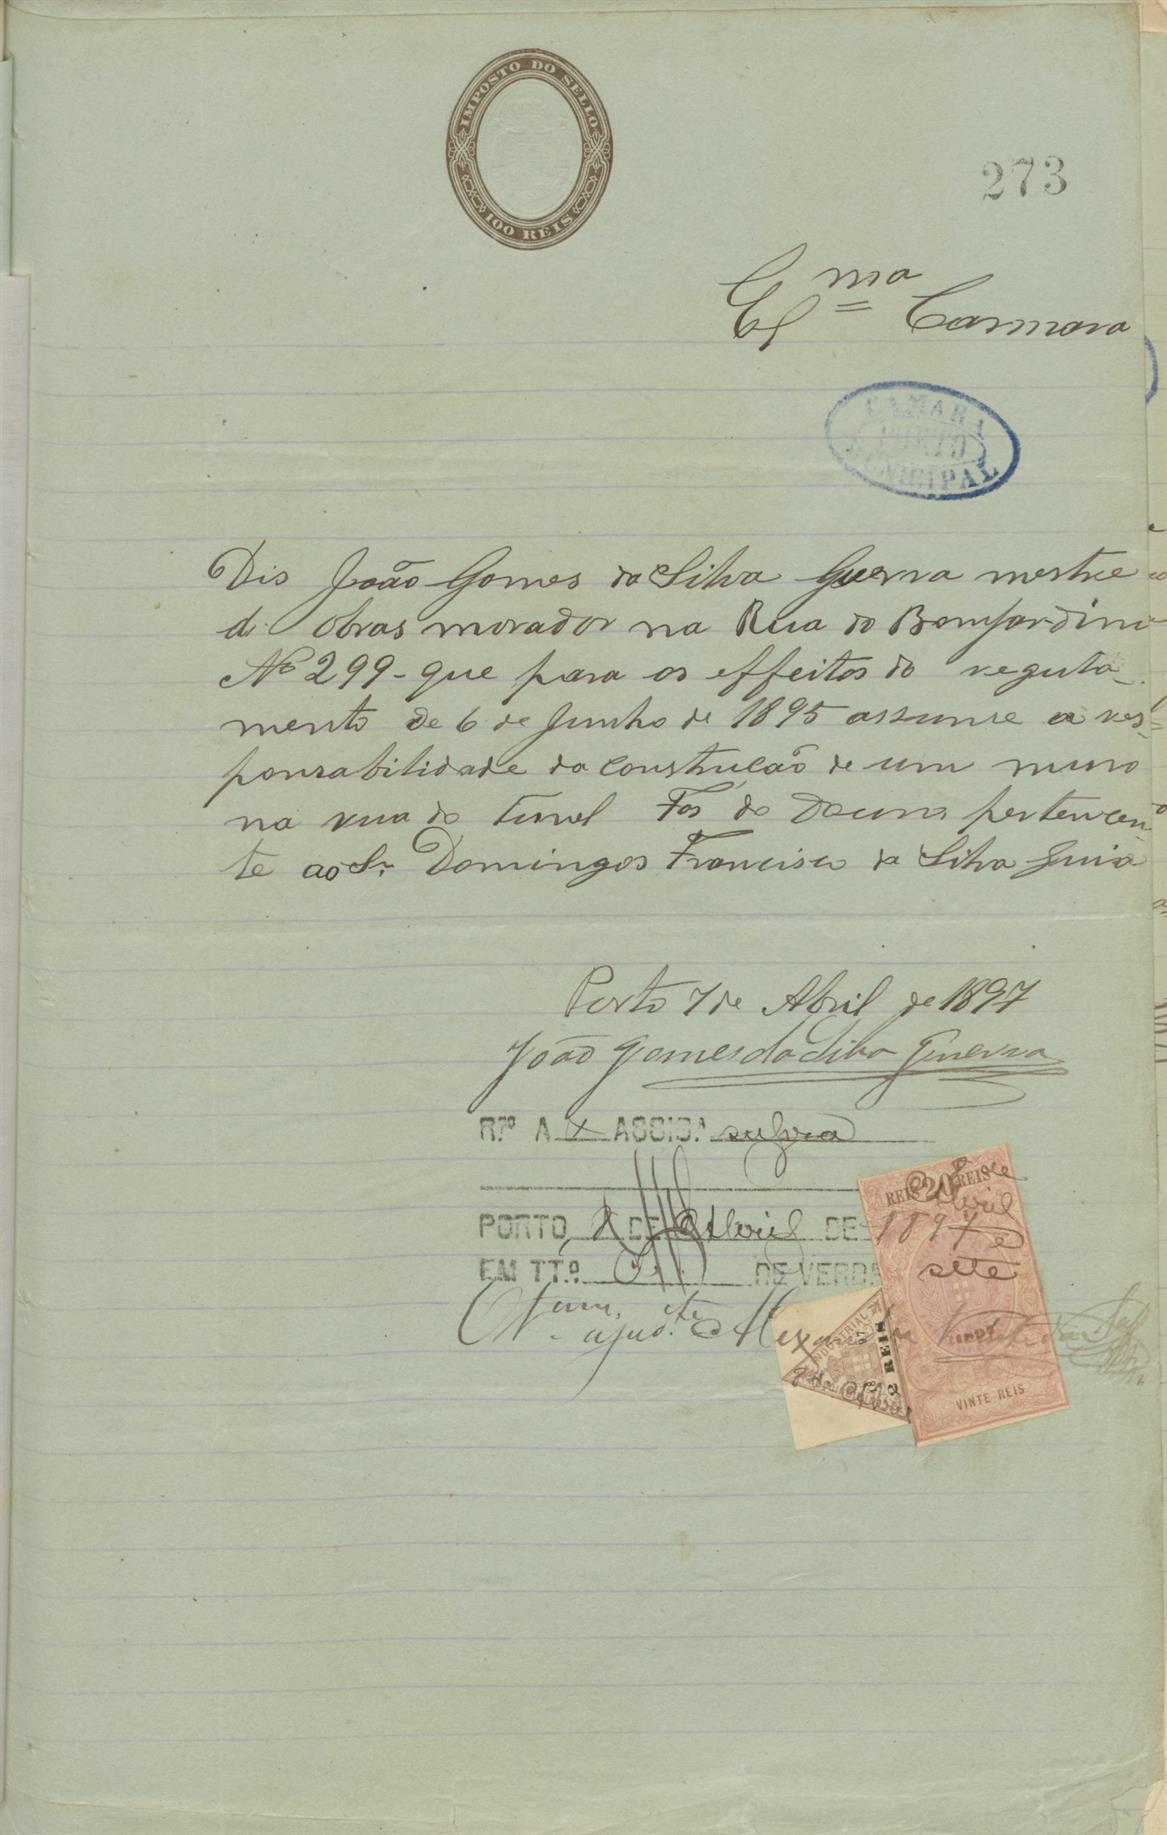 IMPOSTO DO SELLO
100 REIS
273
Exma Camara
CAMARA
PORTO
MUNICIPAL
Dis João Gomes da Silva Guerra mestre
de obras morador na Rua do Bomjardim
No 299 - que para os effeitos do regula-
mento de 6 de Junho de 1895 assume a res-
ponsabilidade da construcão de um muro
na rua do Tunel Fós do Douro pertencen-
te ao Sr. Domingos Francisco da Silva Guia
Porto 7 de Abril de 1897
João Gomes da Silva Guerra
R.º A ASSIG.ª supra
REIS 20 REIS
Abril
PORTO, DE Abril DE 1897 e
sete
EM TT.º DE VERD.
INDUSTRIAL
2 REIS
VINTE REIS